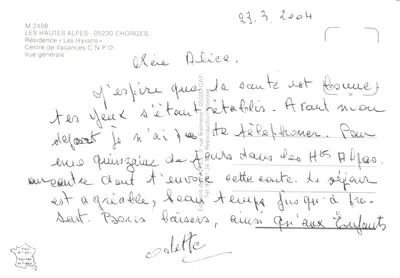 23.3.2004
M 2488
LES HAUTES ALPES - 05230 CHORGES
Résidence « Les Hyvans »
Centre de Vacances C N P O
Vue générale
Chère Alice.
J'espère que la santé est bonne,
tes yeux s'étant rétablis. Avant mon
départ je n'ai pu te téléphoner. Pour
une quinzaine de jours dans les Htes Alpes.
au centre dont t'envoie cette carte. Le séjour
est agréable, beau temps jusqu'à pré-
sent. Bons baisers, ainsi qu'aux Enfants
Odette